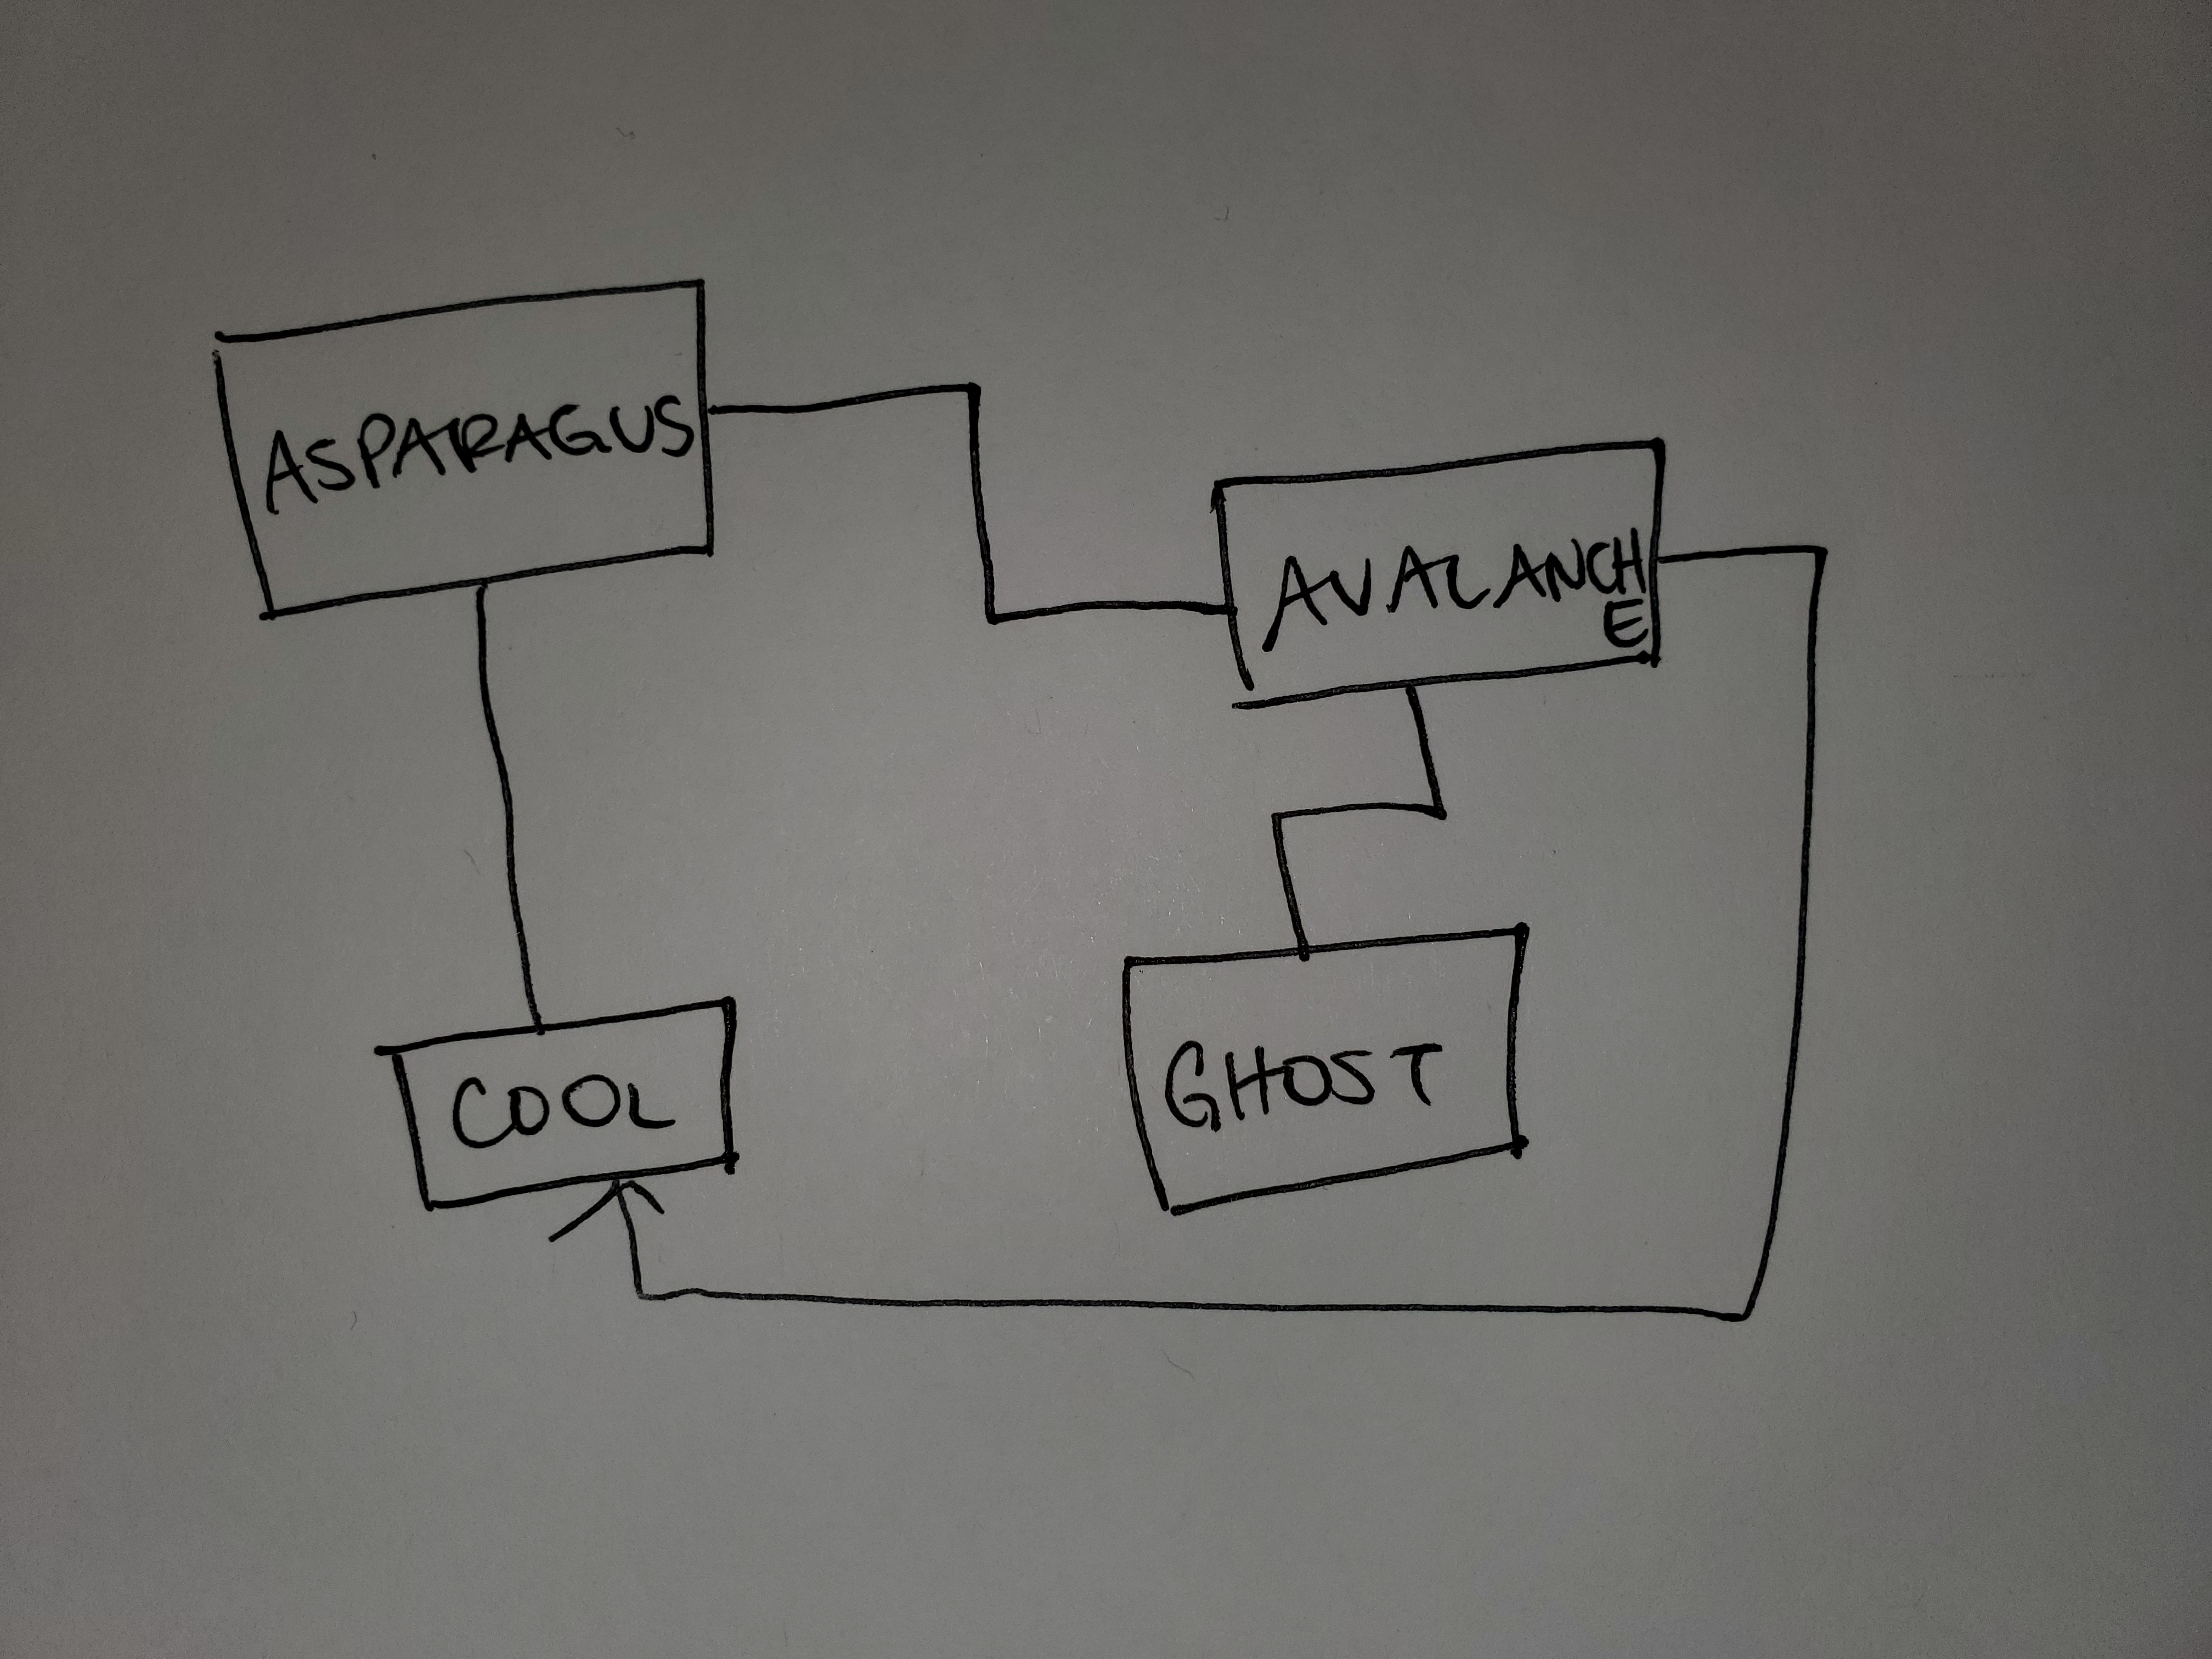 ASPARAGUS
AVALANCH
E
COOL
GHOST